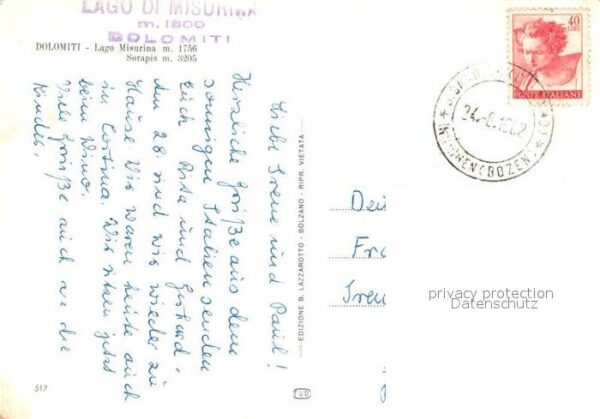 LAGO DI MISURINA
m. 1800
DOLOMITI
DOLOMITI - Lago Misurina m. 1756
Sorapis m. 3205
Liebe Irene und Paul!
Herzliche Grüße aus dem
sonnigen Italien senden
Euch Rita und Gerhard.
Am 28. sind wir wieder zu
Hause Wir waren heute auch
in Cortina. Wir sitzen jetzt
beim Wimo.
Viele Grüße auch an die
Kinder.
EDIZIONE B. LAZZAROTTO - BOLZANO - RIPR. VIETATA -
40
LIRE
POSTE ITALIANE
24.-6.1962
(BOZEN)
Fra
Iren
privacy protection
Datenschutz
517